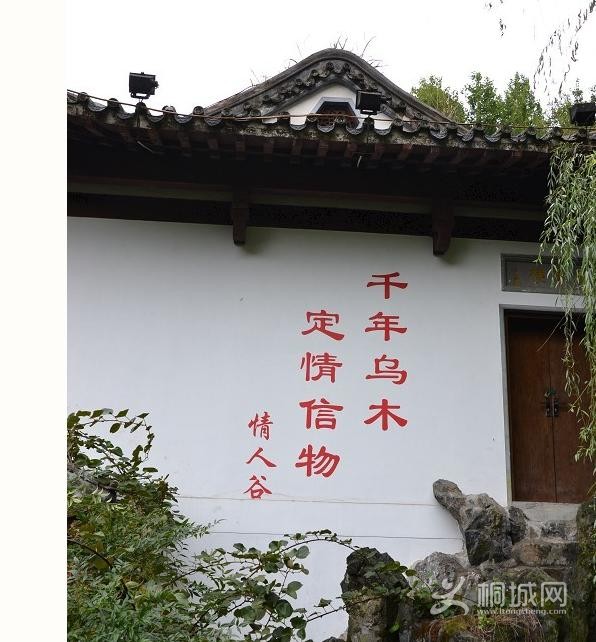 千年乌木
定情信物
情人谷
桐城网
www.itongcheng.com